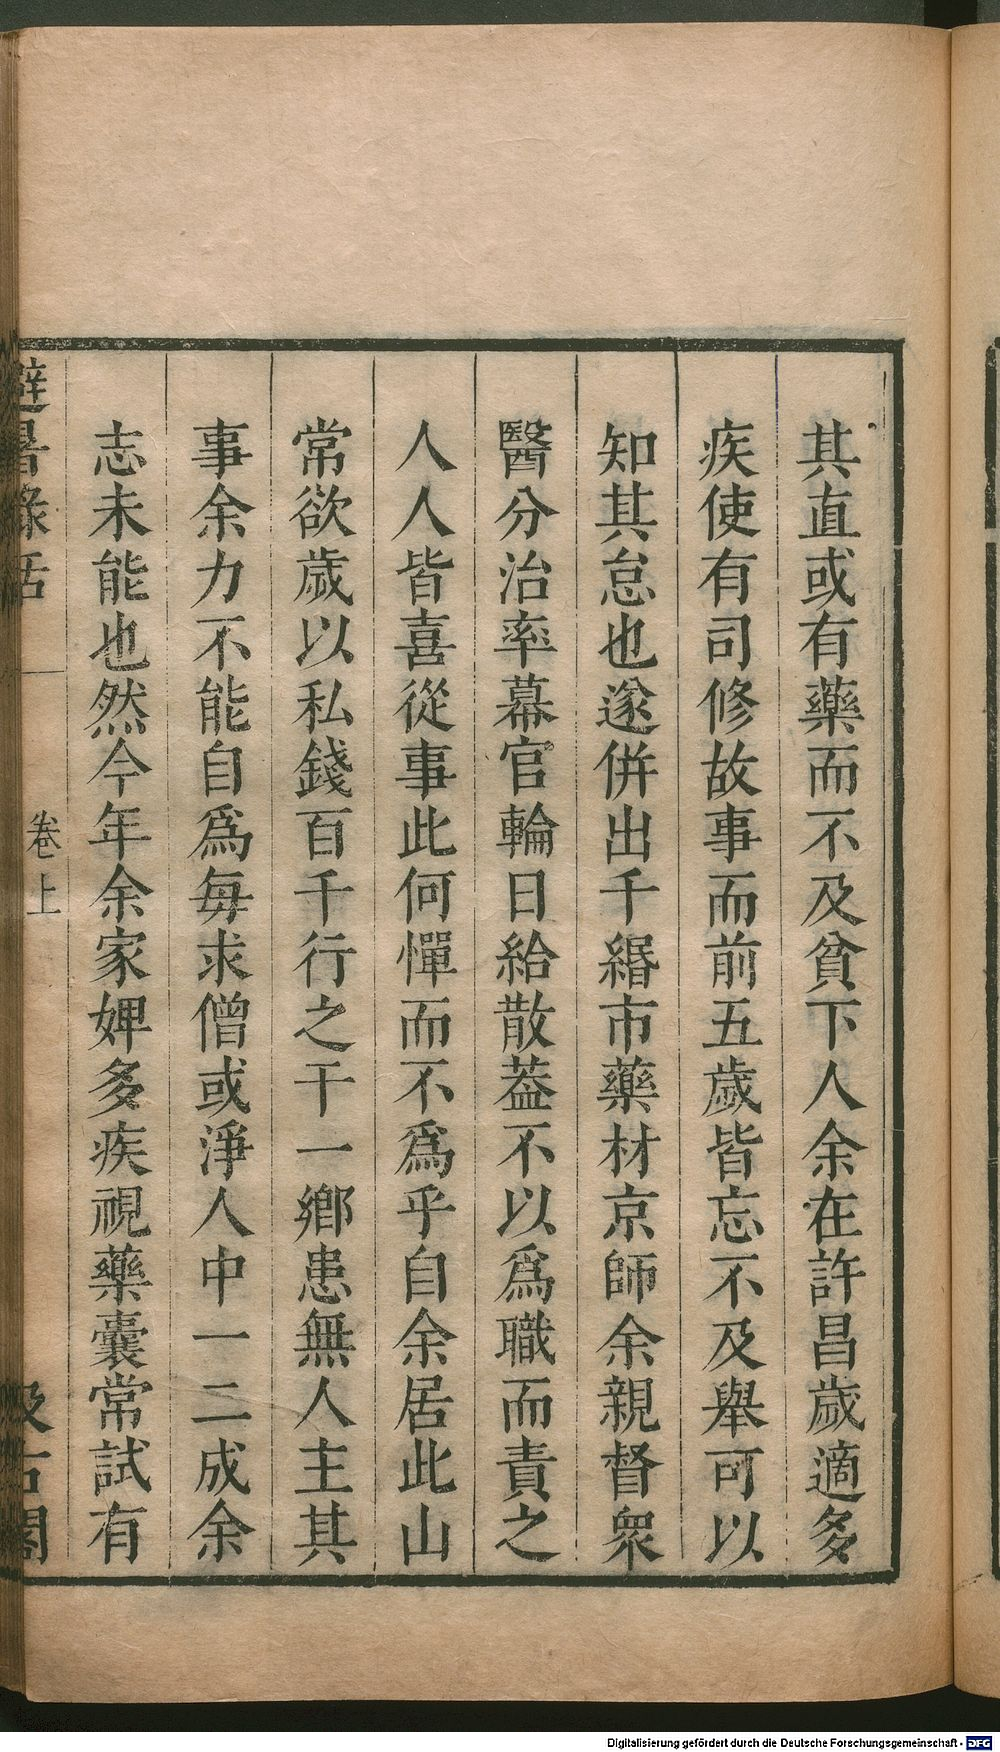 其直或有藥而不及貧下人余在許昌歲適多
疾使有司修故事而前五歲皆忘不及舉可以
知其怠也遂併出千緡市藥材京師余親督衆
醫分治率幕官輪日給散葢不以爲職而責之
人人皆喜從事此何憚而不爲乎自余居此山
常欲歲以私錢百千行之于一鄉患無人主其
事余力不能自爲每求僧或淨人中一二成余
志未能也然今年余家婢多疾視藥囊常試有
避暑錄話
卷上
汲古閣
Digitalisierung gefördert durch die Deutsche Forschungsgemeinschaft - DFG